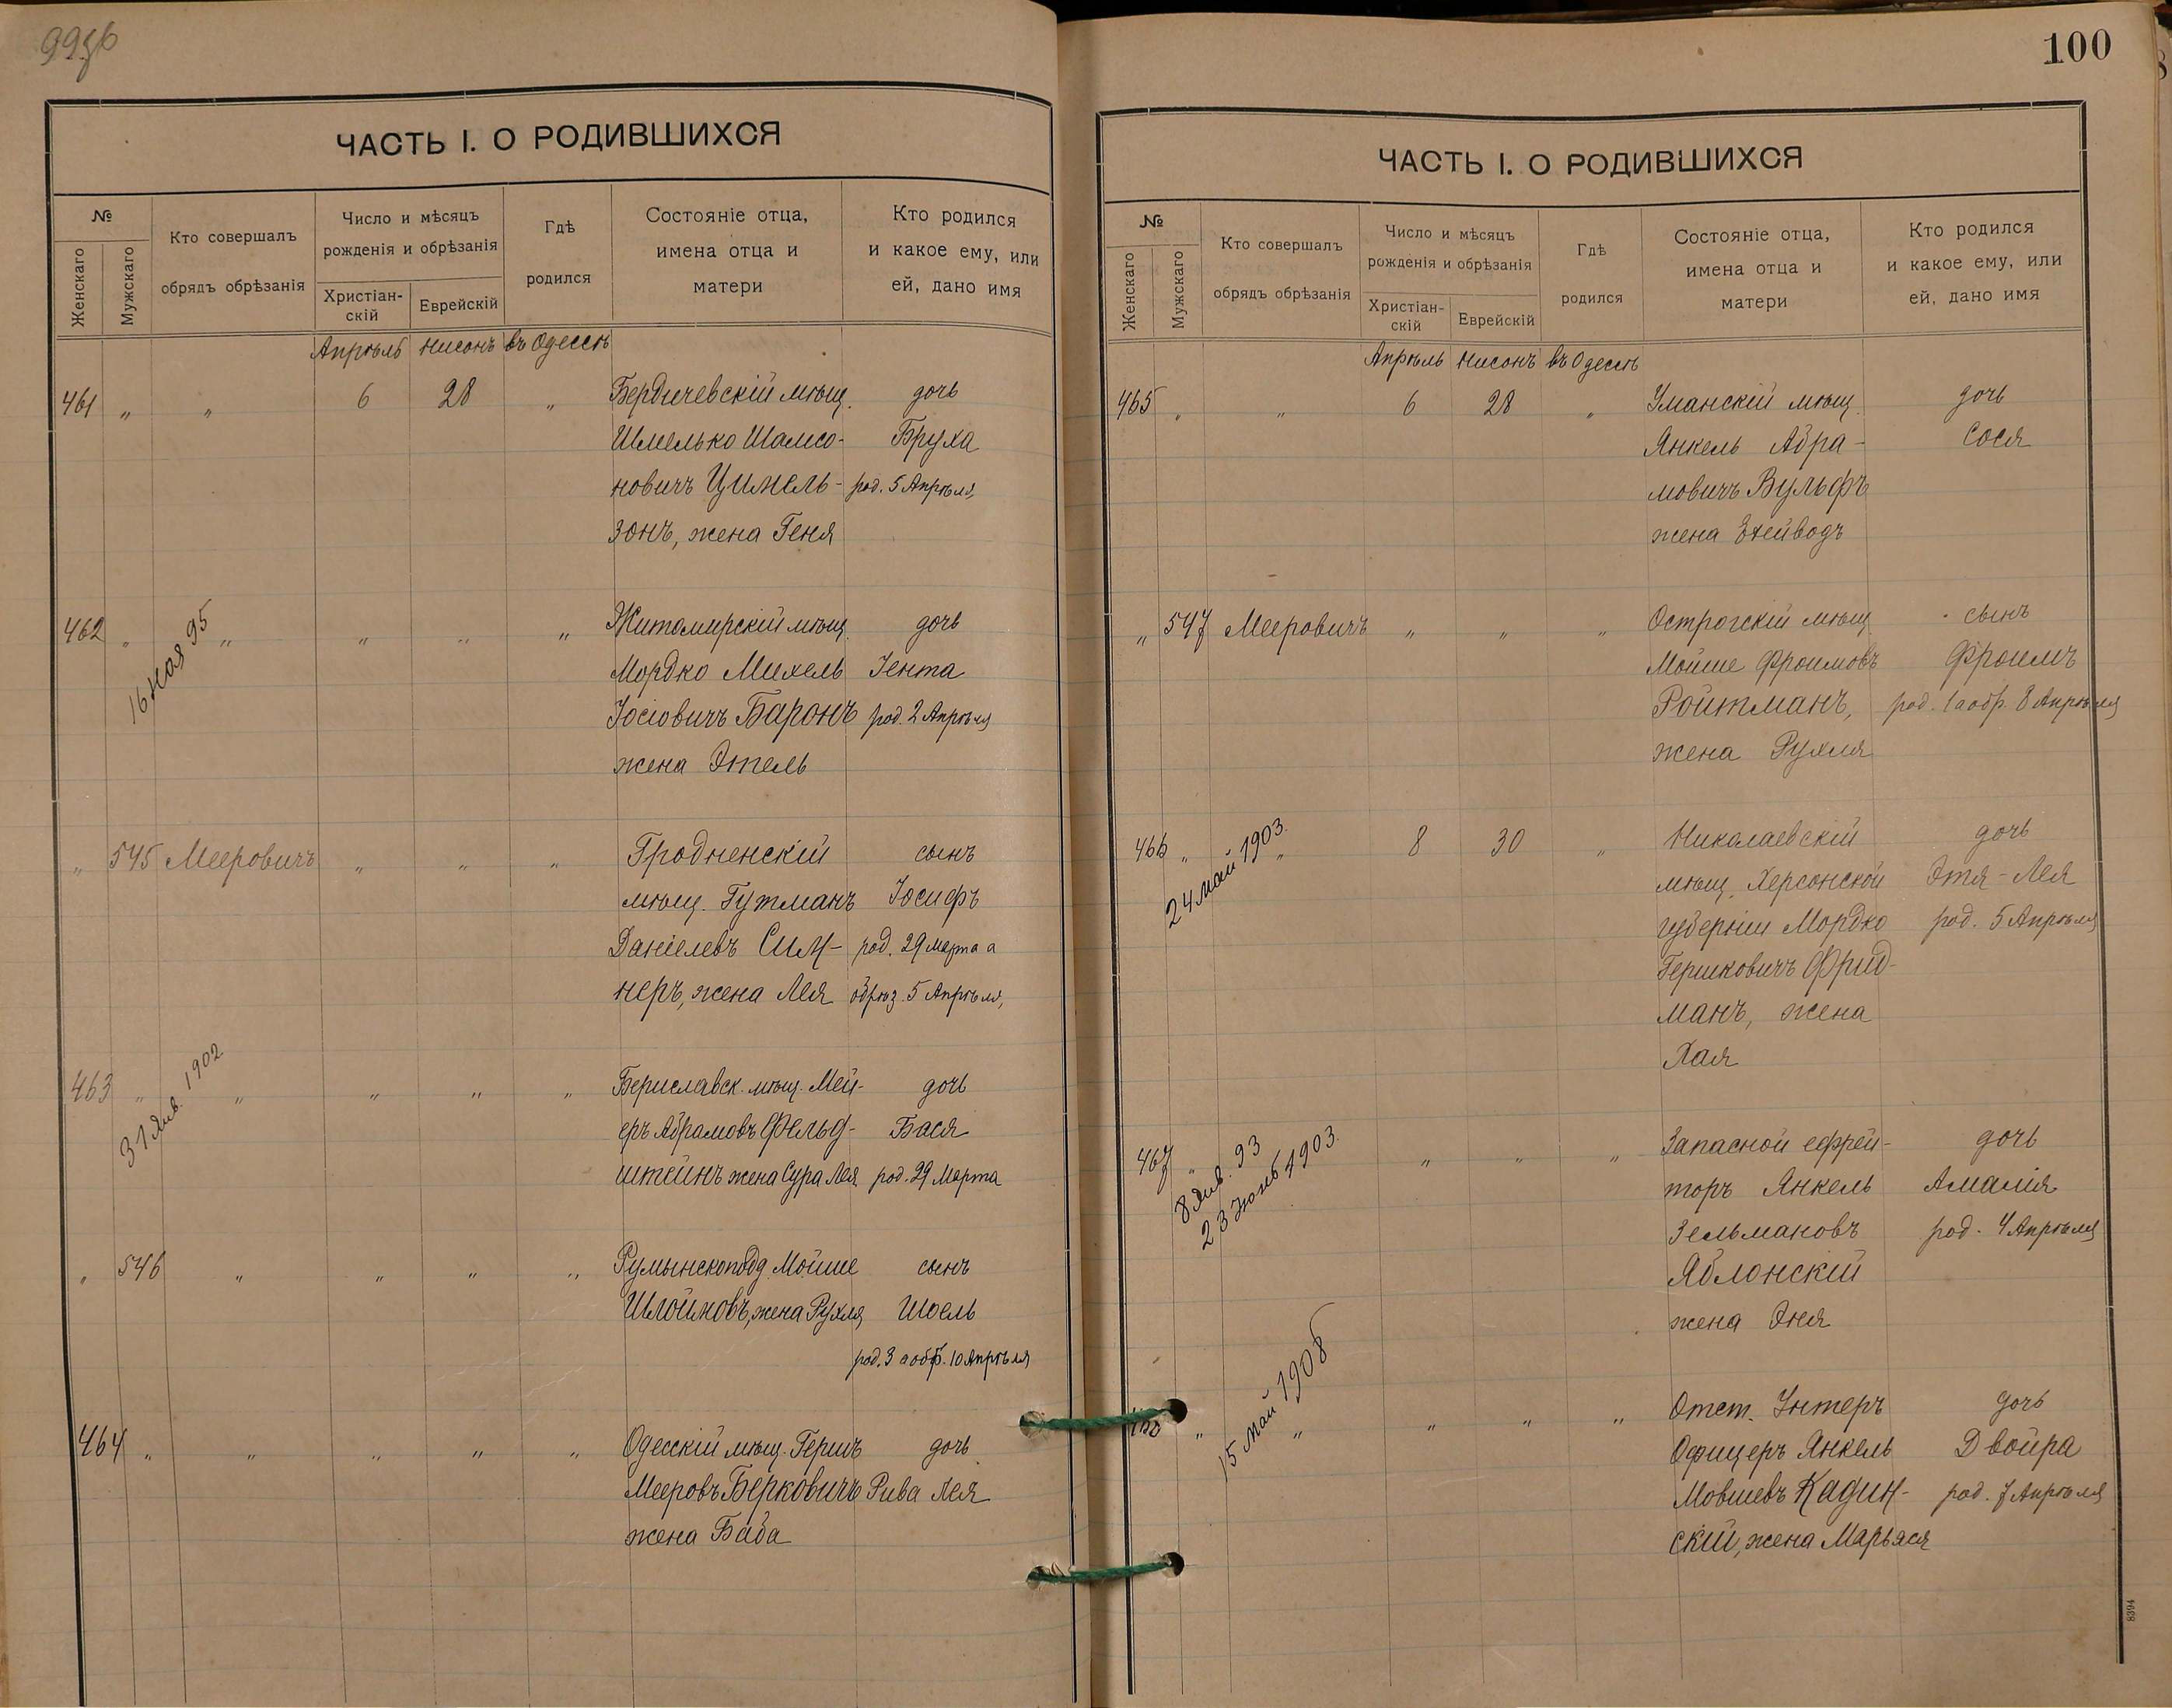 ЧАСТЬ I. О РОДИВШИХСЯ
№
Женскаго
Мужскаго
Кто совершалъ
обрядъ обрѣзанія
Число и мѣсяцъ
рожденія и обрѣзанія
Христіан-
скій
Еврейскій
Гдѣ
родился
Состояніе отца,
имена отца и
матери
Кто родился
и какое ему, или
ей, дано имя
Апрѣль Нисонъ въ Одессѣ
461 " " 6 28 " Бердичевскій мѣщ. дочь
Шмелько Шамсо- Бруха
новичъ Цимель- род. 5 Апрѣля,
зонъ, жена Геня
462 " " " " " Житомирскій мѣщ. дочь
16 Ноя 95
Мордко Михель Іента
Іосіовичъ Баронъ род. 2 Апрѣля
жена Этель
" 545 Мееровичъ " " " Гродненскій сынъ
мѣщ. Гутманъ Іосифъ
Даніелевъ род. 29 Марта а
неръ, жена Лея обрѣз. 5 Апрѣля,
463 " " " " " Бериславск. мѣщ. Мей- дочь
31 Янв. 1902
еръ Абрамовъ Фельд- Бася
штейнъ жена Сура Лея род. 29 Марта
" 546 " " " " Румынскоподд. Мойше сынъ
Шлоймовъ, жена Рухля Шоель
род. 3 а обр. 10 Апрѣля
464 " " " " " Одесскій мѣщ. Гершъ дочь
Мееровъ Берковичъ Рива Лея
жена Баба
100
ЧАСТЬ I. О РОДИВШИХСЯ
№
Женскаго
Мужскаго
Кто совершалъ
обрядъ обрѣзанія
Число и мѣсяцъ
рожденія и обрѣзанія
Христіан-
скій
Еврейскій
Гдѣ
родился
Состояніе отца,
имена отца и
матери
Кто родился
и какое ему, или
ей, дано имя
Апрѣль Нисонъ въ Одессѣ
465 " " 6 28 " Уманскій мѣщ. дочь
Янкель Абра- Сося
мовичъ Вульфъ
жена
" 547 Мееровичъ " " " Острогскій мѣщ. сынъ
Мойше Фроимовъ Фроимъ
Ройтманъ, род. 1 а обр. 8 Апрѣля
жена Рухля
466 " " 8 30 " Николаевскій дочь
24 май 1903.
мѣщ. Херсонской Этя-Лея
губерніи Мордко род. 5 Апрѣля
Гершковичъ Фрид-
манъ, жена
Хая
467 " " " " Запасной ефрей- дочь
8 Янв. 93
23 Іюнь 1903.
торъ Янкель Амалія
Зельмановъ род. 4 Апрѣля
Яблонскій
жена Эня
" " " " " Отст. Унтеръ дочь
15 май 1908
Офицеръ Янкель Двойра
Мовшевъ Кадин- род. 7 Апрѣля
скій, жена Марьяся
8394